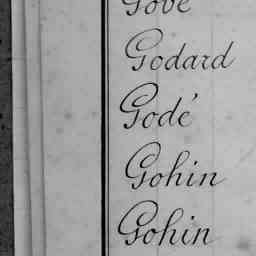 Gobé
Godard
Godé
Gohin
Gohin